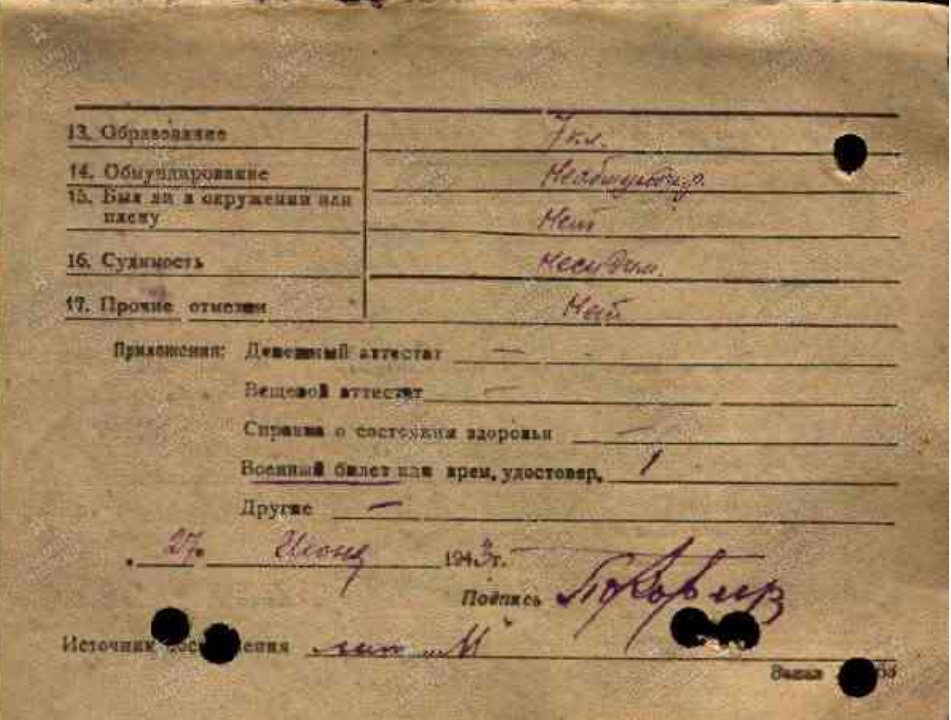 13. Образование 7 кл.
14. Обмундирование Необмундир.
15. Был ли в окружении или
плену Нет
16. Судимость Несудим.
17. Прочие отметки Нет
Приложения: Денежный аттестат —
Вещевой аттестат —
Справка о состоянии здоровья —
Военный билет или врем. удостовер. 1
Другие —
„27“ Июня 1943г.
Подпись
Источник лит „М“
Заказ